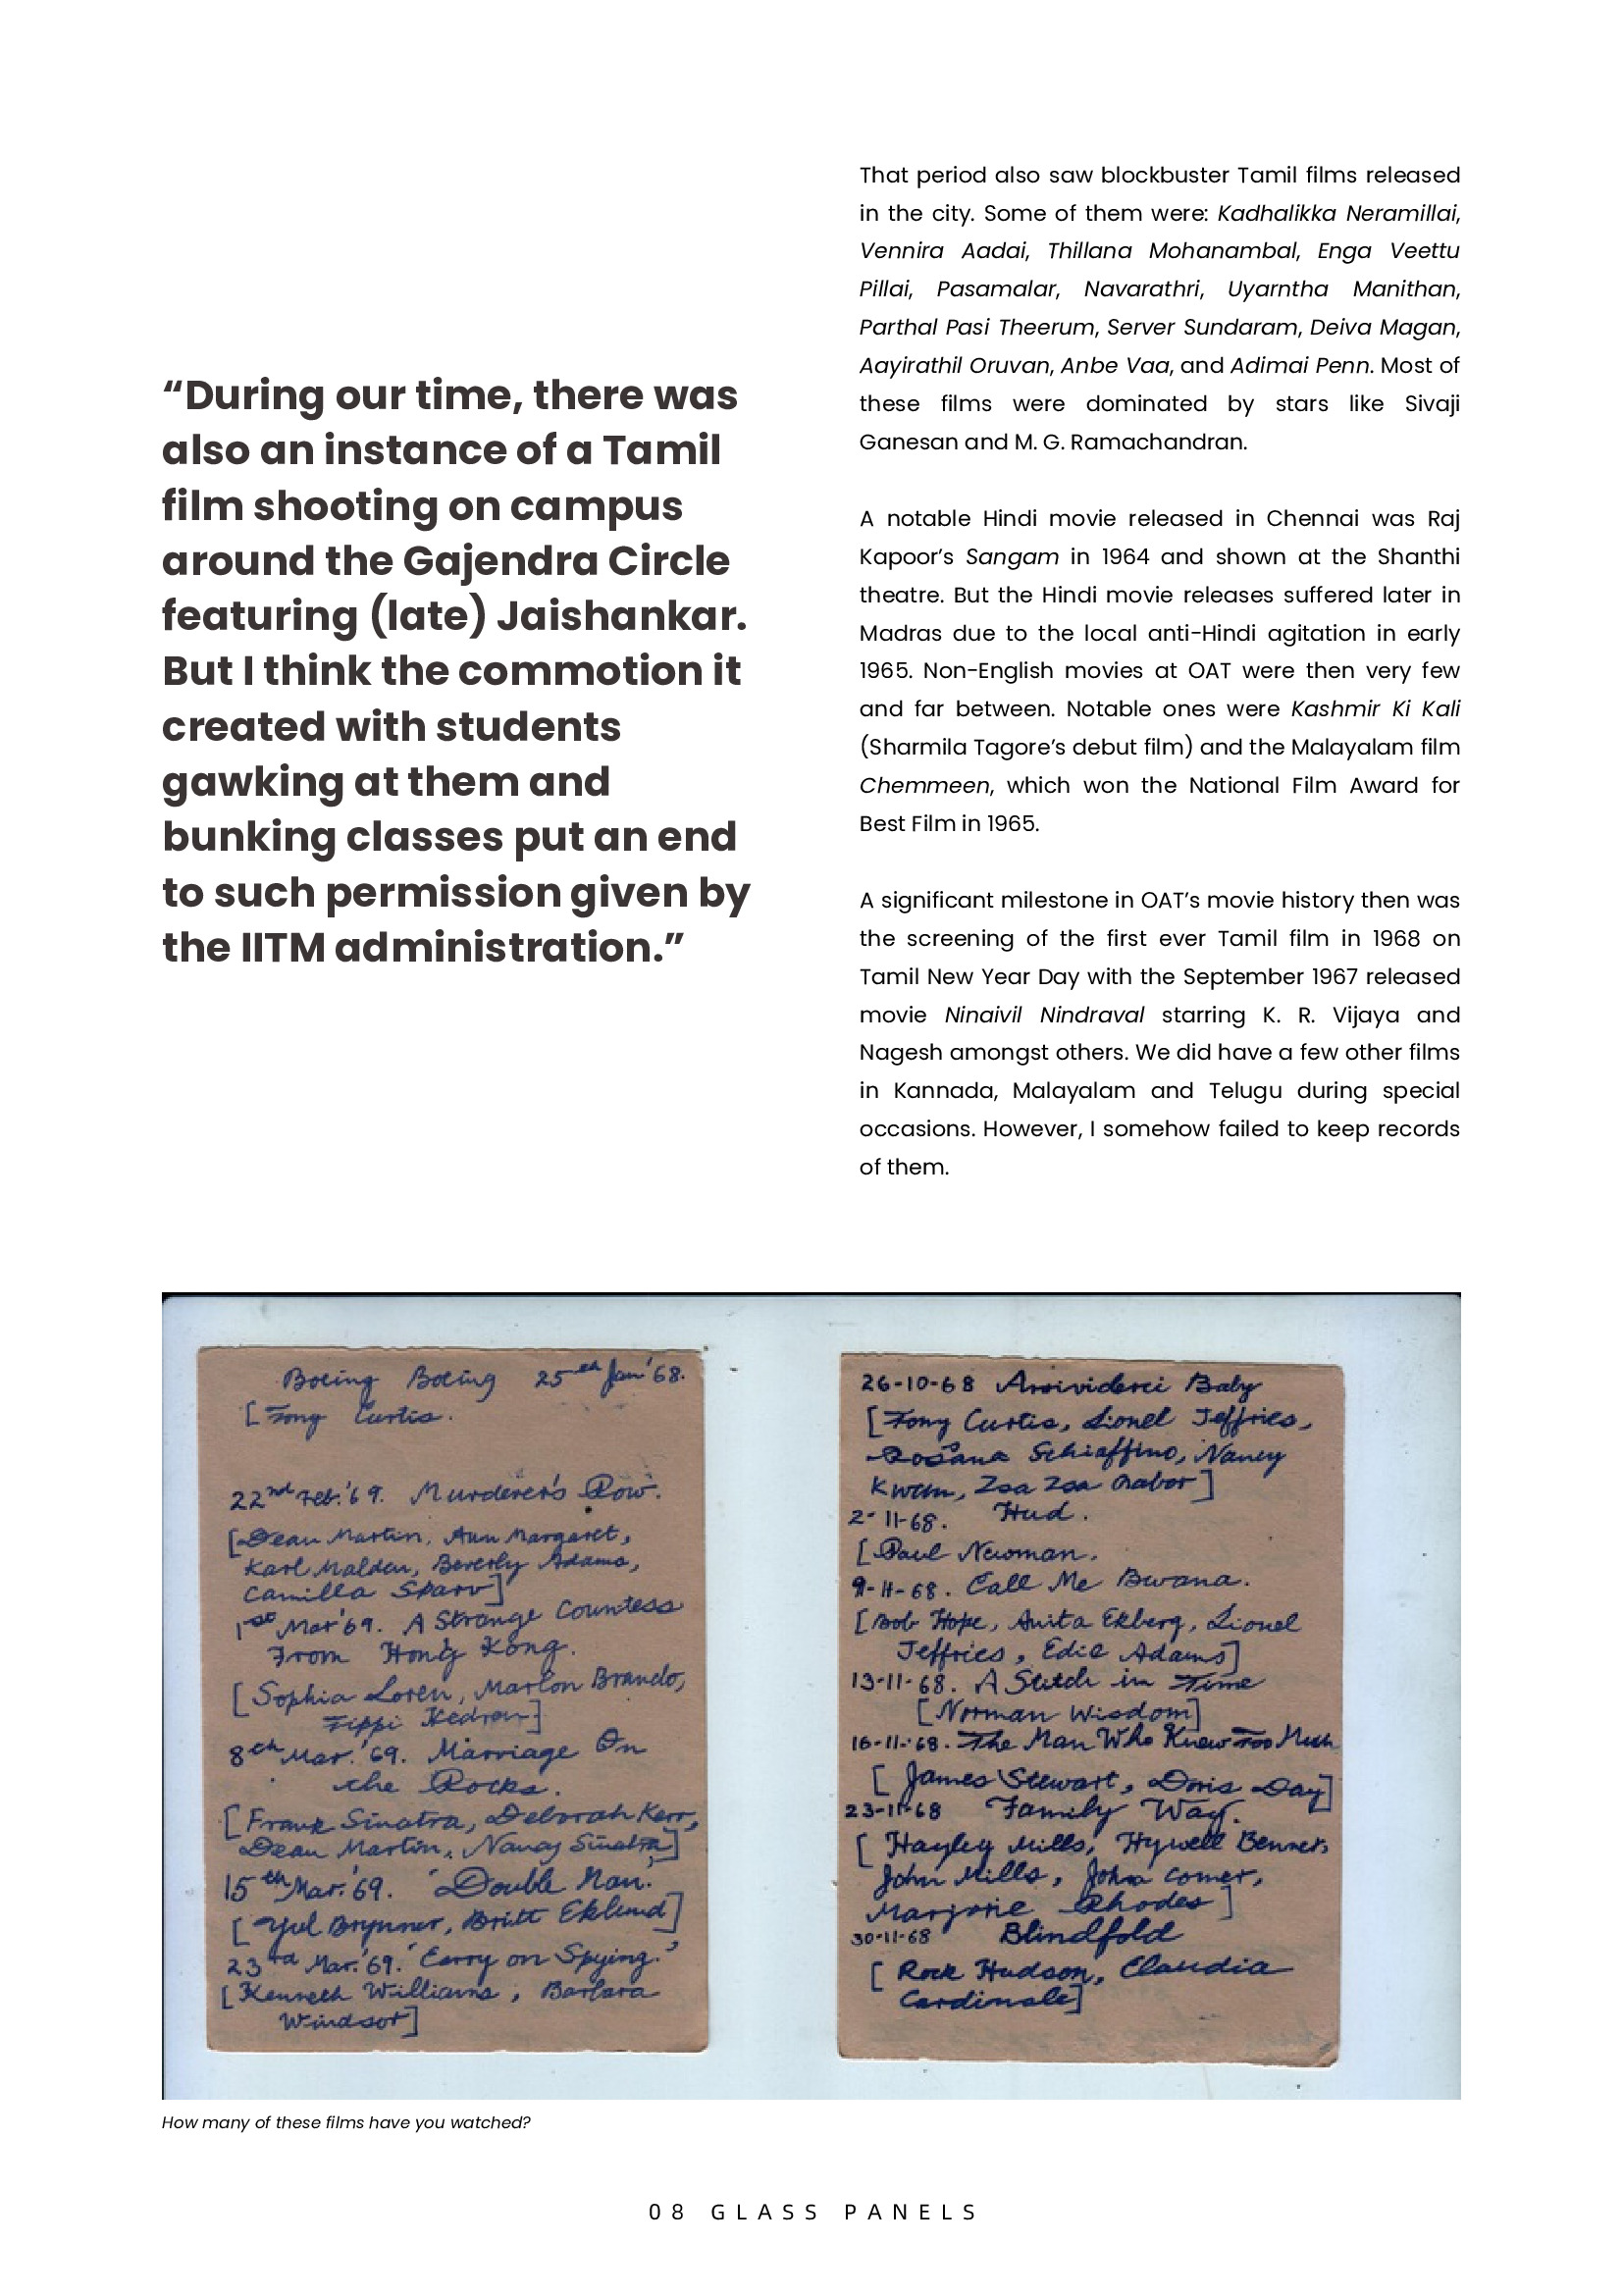 “During our time, there was
also an instance of a Tamil
film shooting on campus
around the Gajendra Circle
featuring (late) Jaishankar.
But I think the commotion it
created with students
gawking at them and
bunking classes put an end
to such permission given by
the IITM administration.”
That period also saw blockbuster Tamil films released
in the city. Some of them were: Kadhalikka Neramillai,
Vennira Aadai, Thillana Mohanambal, Enga Veettu
Pillai, Pasamalar, Navarathri, Uyarntha Manithan,
Parthal Pasi Theerum, Server Sundaram, Deiva Magan,
Aayirathil Oruvan, Anbe Vaa, and Adimai Penn. Most of
these films were dominated by stars like Sivaji
Ganesan and M. G. Ramachandran.
A notable Hindi movie released in Chennai was Raj
Kapoor’s Sangam in 1964 and shown at the Shanthi
theatre. But the Hindi movie releases suffered later in
Madras due to the local anti-Hindi agitation in early
1965. Non-English movies at OAT were then very few
and far between. Notable ones were Kashmir Ki Kali
(Sharmila Tagore’s debut film) and the Malayalam film
Chemmeen, which won the National Film Award for
Best Film in 1965.
A significant milestone in OAT’s movie history then was
the screening of the first ever Tamil film in 1968 on
Tamil New Year Day with the September 1967 released
movie Ninaivil Nindraval starring K. R. Vijaya and
Nagesh amongst others. We did have a few other films
in Kannada, Malayalam and Telugu during special
occasions. However, I somehow failed to keep records
of them.
Boeing Boeing 25th Jan '68.
[Tony Curtis.
22nd Feb.'69. Murderer's Row.
[Dean Martin, Ann Margaret,
Karl Malden, Beverly Adams,
Camilla Sparv]
1st Mar '69. A Strange Countess
From Hong Kong.
[Sophia Loren, Marlon Brando,
Tippi Hedren]
8th Mar.'69. Marriage On
the Rocks.
[Frank Sinatra, Deborah Kerr,
Dean Martin, Nancy Sinatra]
15th Mar.'69. 'Double Man.'
[Yul Brynner, Britt Eklund]
23rd Mar.'69. 'Carry on Spying.'
[Kenneth Williams, Barbara
Windsor]
26-10-68 Arrividerci Baby
[Tony Curtis, Lionel Jeffries,
Rosana Schiaffino, Nancy
Kwan, Zsa Zsa Gabor]
2-11-68. Hud.
[Paul Newman.
9-11-68. Call Me Bwana.
[Bob Hope, Anita Ekberg, Lionel
Jeffries, Edie Adams]
13-11-68. A Stitch in Time
[Norman Wisdom]
16-11-'68. The Man Who Knew Too Much
[James Stewart, Doris Day]
23-11-68 Family Way.
[Hayley Mills, Hywell Bennet,
John Mills, John Comer,
Marjorie Rhodes]
30-11-68 Blindfold
[Rock Hudson, Claudia
Cardinale]
How many of these films have you watched?
08 GLASS PANELS